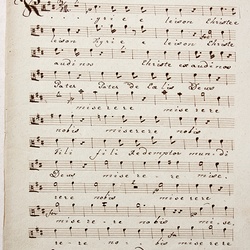 - grie e leison Christe
leison Kyrie e leison Christe
audi nos Christe exaudi nos
Pater Pater de Cœlis Deus
miserere miserere
nobis miserere nobis
Fili fili Redemptor mundi
Deus mise re re mise
rere nobis miserere
nobis mise re re nobis mise
re re no bis mise rere